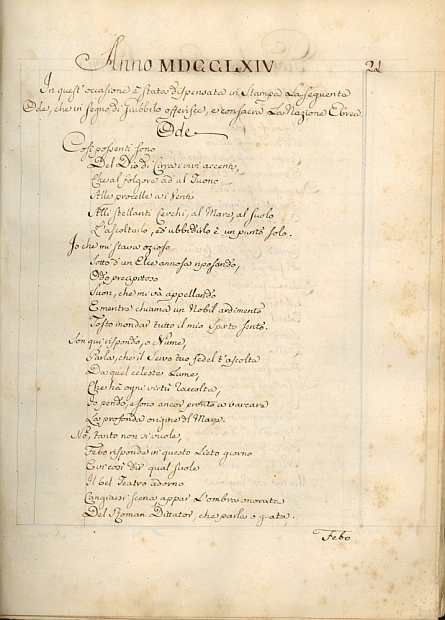 Anno MDCCLXIV 21
In quest'occasione è stata dispensata in Stampa La seguente
Ode, che in segno di Giubbilo offerisce, e consacra La Nazione Ebrea
Ode
Così possenti sono
Del Dio di Cirra i vivi accenti,
Che al folgore ad al Tuono
Alle procelle a i Venti
Alli stellanti Cerchi, al Mare, al suolo
L'ascoltarlo, ed ubbidirlo è un punto solo.
Io che mi stava ozioso
Sotto d'un Elce annosa riposando,
Odo precipitoso
Suon, che mi và appellando
E mentre chiama un Nobil ardimento
Tosto inondar tutto il mio Spirto sento.
Son qui rispondo, o Nume,
Parla, che il Servo tuo fedel t'ascolta
Da quel celeste Lume,
Che hà ogni virtù raccolta,
Io pendo, e sono ancor pronto a varcare
La profonda origine del Mare.
Nò, tanto non si vuole,
Febo risponde in questo Lieto giorno
E in così dir qual suole
Il bel Teatro adorno
Cangiarsi scena, appar L'ombra onorata
Del Roman Dittator, che parla e guata.
Febo